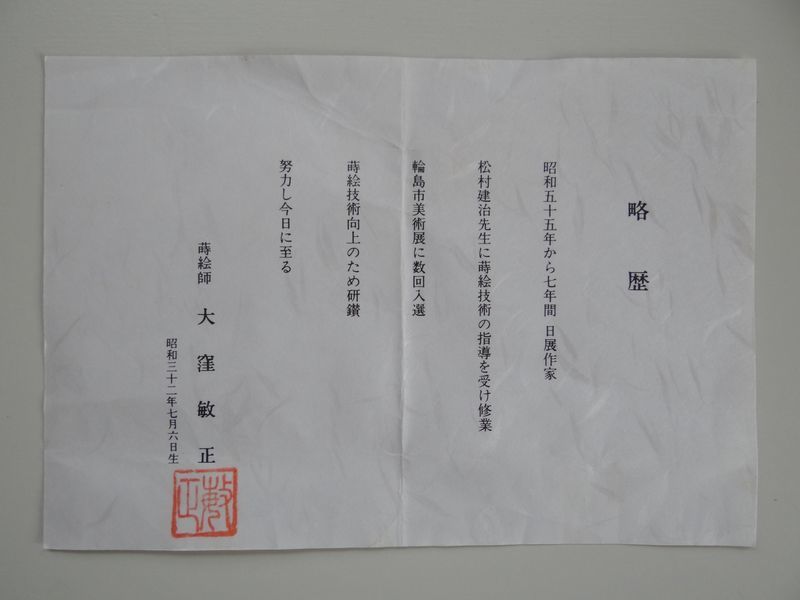 略歴
昭和五十五年から七年間 日展作家
松村建治先生に蒔絵技術の指導を受け修業
輪島市美術展に数回入選
蒔絵技術向上のため研鑚
努力し今日に至る
蒔絵師 大窪敏正
昭和三十二年七月六日生
敏正